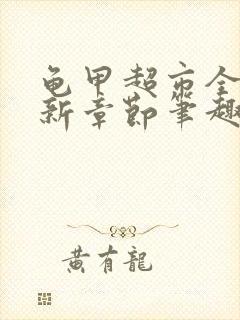 龟甲超市全
新章節筆趣
黄有龍